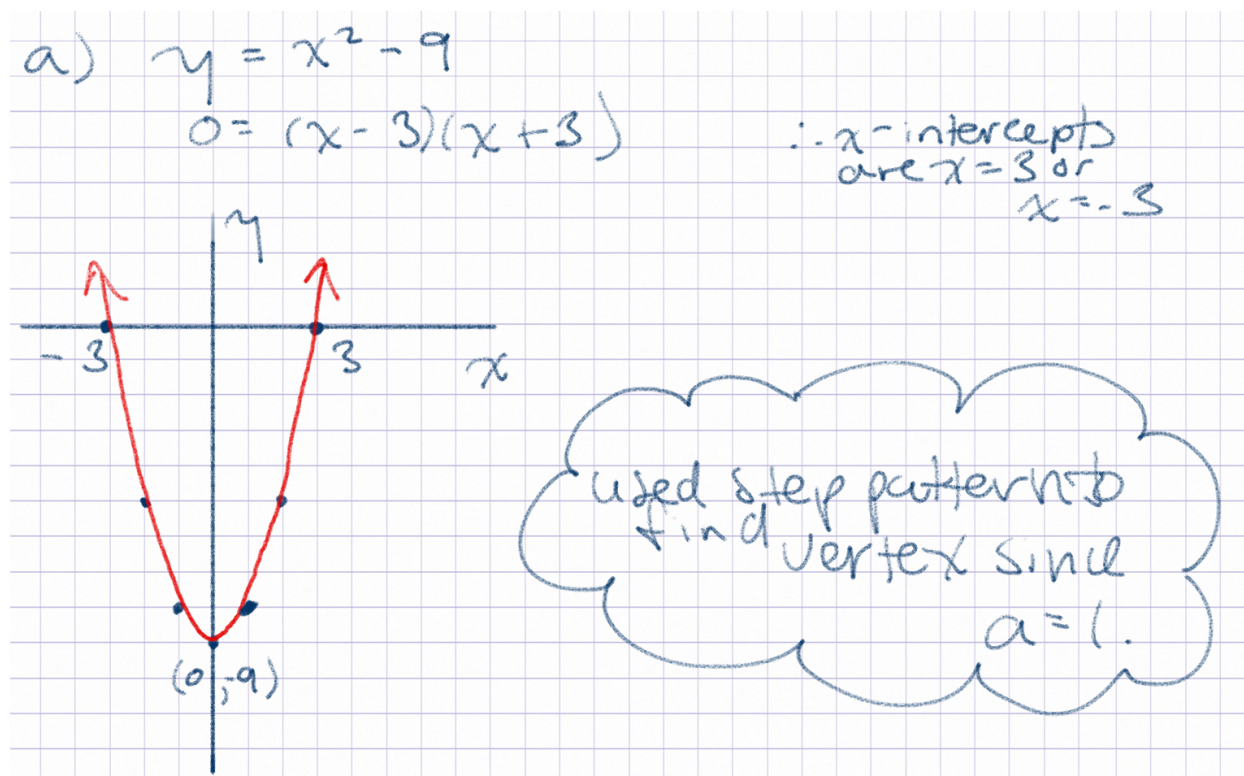 a) y = x² - 9
0 = (x - 3)(x + 3)
∴ x-intercepts
are x = 3 or
x = -3
y
-3
3
x
used step pattern to
find vertex since
a = 1.
(0, -9)